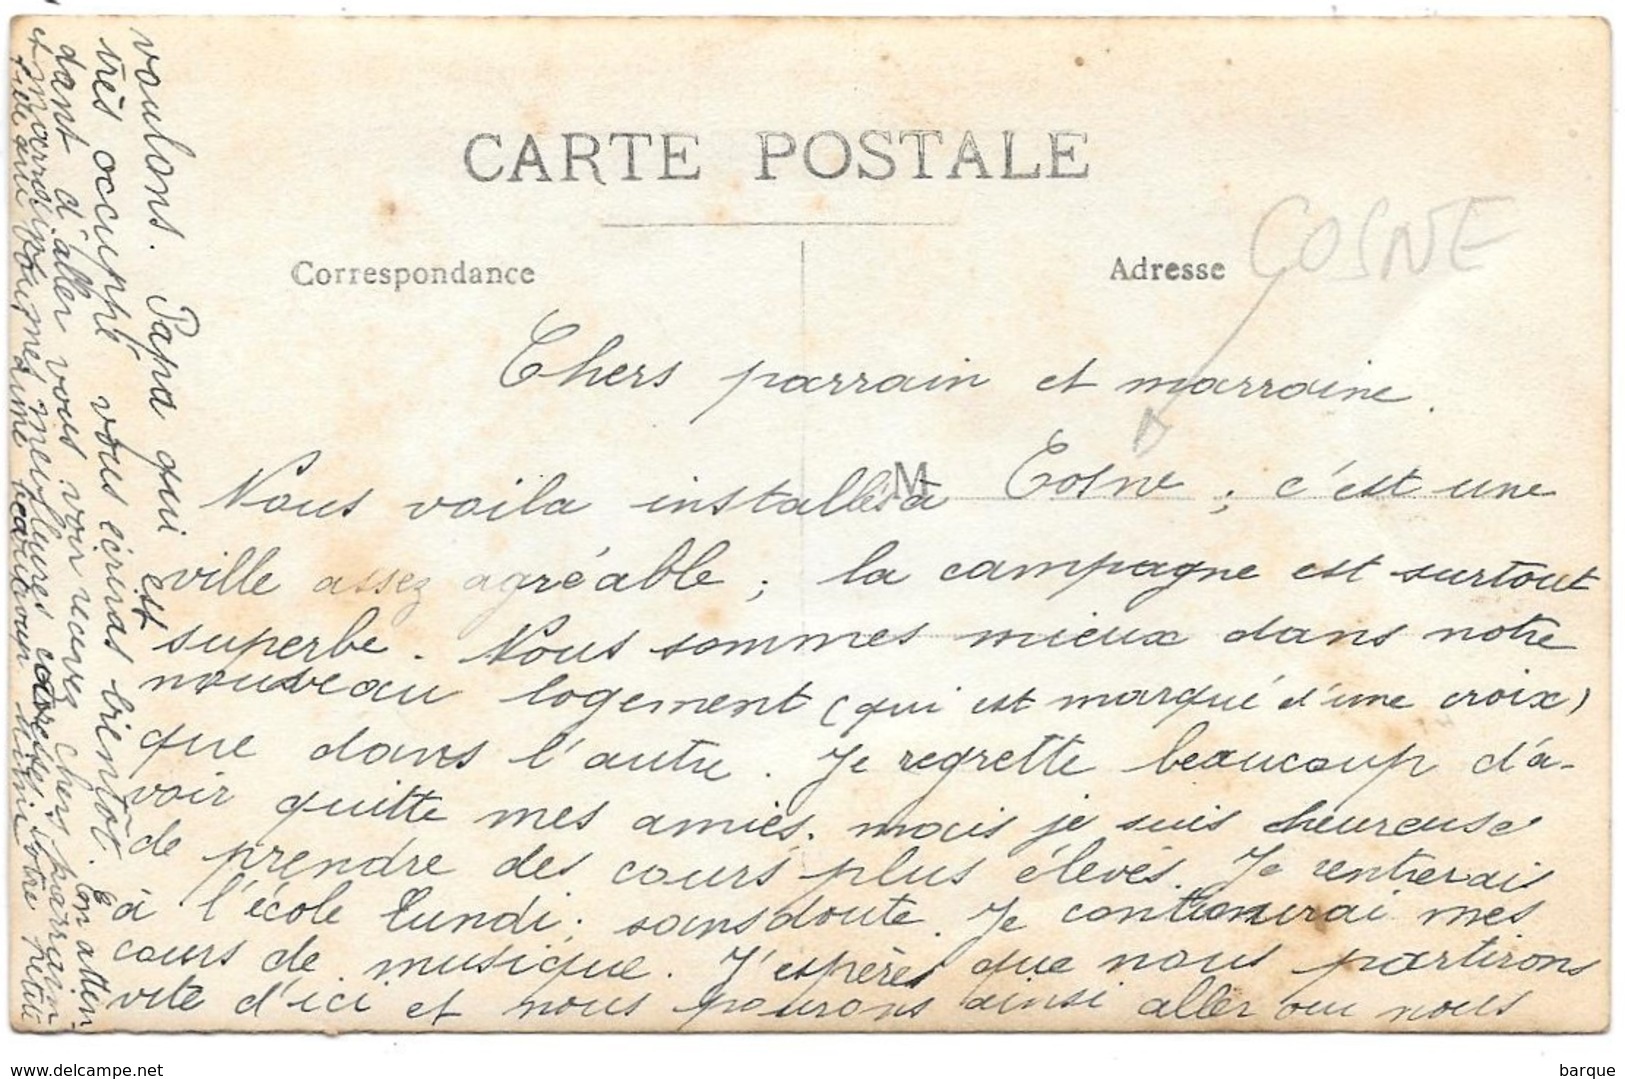 CARTE POSTALE
Correspondance
Adresse
COSNE
M
Chers parrain et marraine.
Nous voila installés à Cosne ; c'est une
ville assez agréable ; la campagne est surtout
superbe. Nous sommes mieux dans notre
nouveau logement (qui est marqué d'une croix)
que dans l'autre. Je regrette beaucoup d'a-
voir quitte mes amies. mais je suis heureuse
de prendre des cours plus élevés. Je rentrerais
à l'école lundi. sans doute. Je continuerai mes
cours de musique. J'espères que nous partirons
vite d'ici et nous pourons ainsi aller ou nous
voulons. Papa qui est
très occuppé vous écriras bientôt. En atten-
dant d'aller vous voir recevez chers parrain
et marraine mes meilleures caresses. Votre petite
qui vous aime beaucoup Mimi
delcampe.net
barque